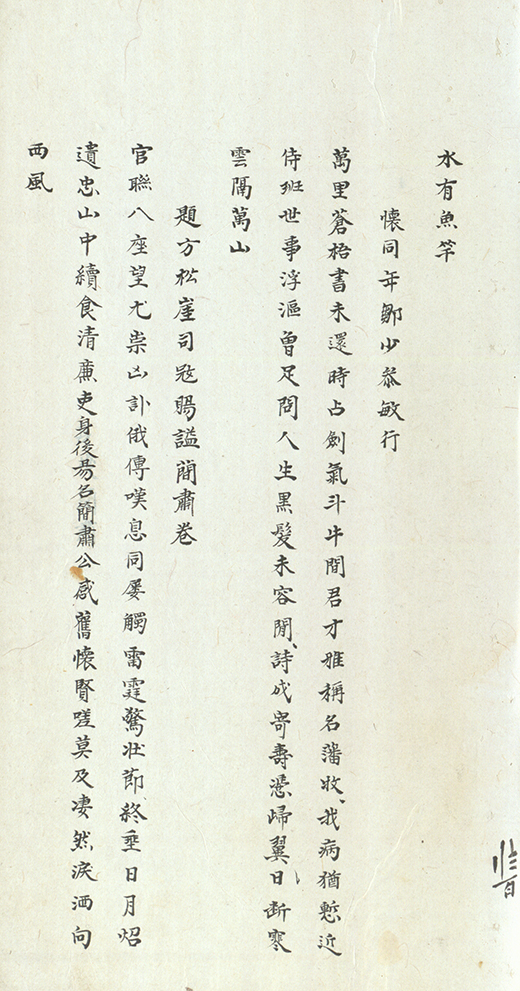 水有魚竿
懷同年鄒少叅敏行
萬里蒼梧書未還時占劍氣斗牛間君才雅稱名藩牧我病猶慙近
侍班世事浮漚曾足問人生黑髮未容閒詩成寄壽憑歸翼日斷寒
雲隔萬山
題方松崖司宼賜謚簡肅卷
官聯八座望尤崇凶訃俄傳嘆息同屡觸雷霆驚壯節終垂日月炤
遺忠山中續食清廉吏身後昜名簡肅公感舊懷賢嗟莫及凄然淚洒向
西風